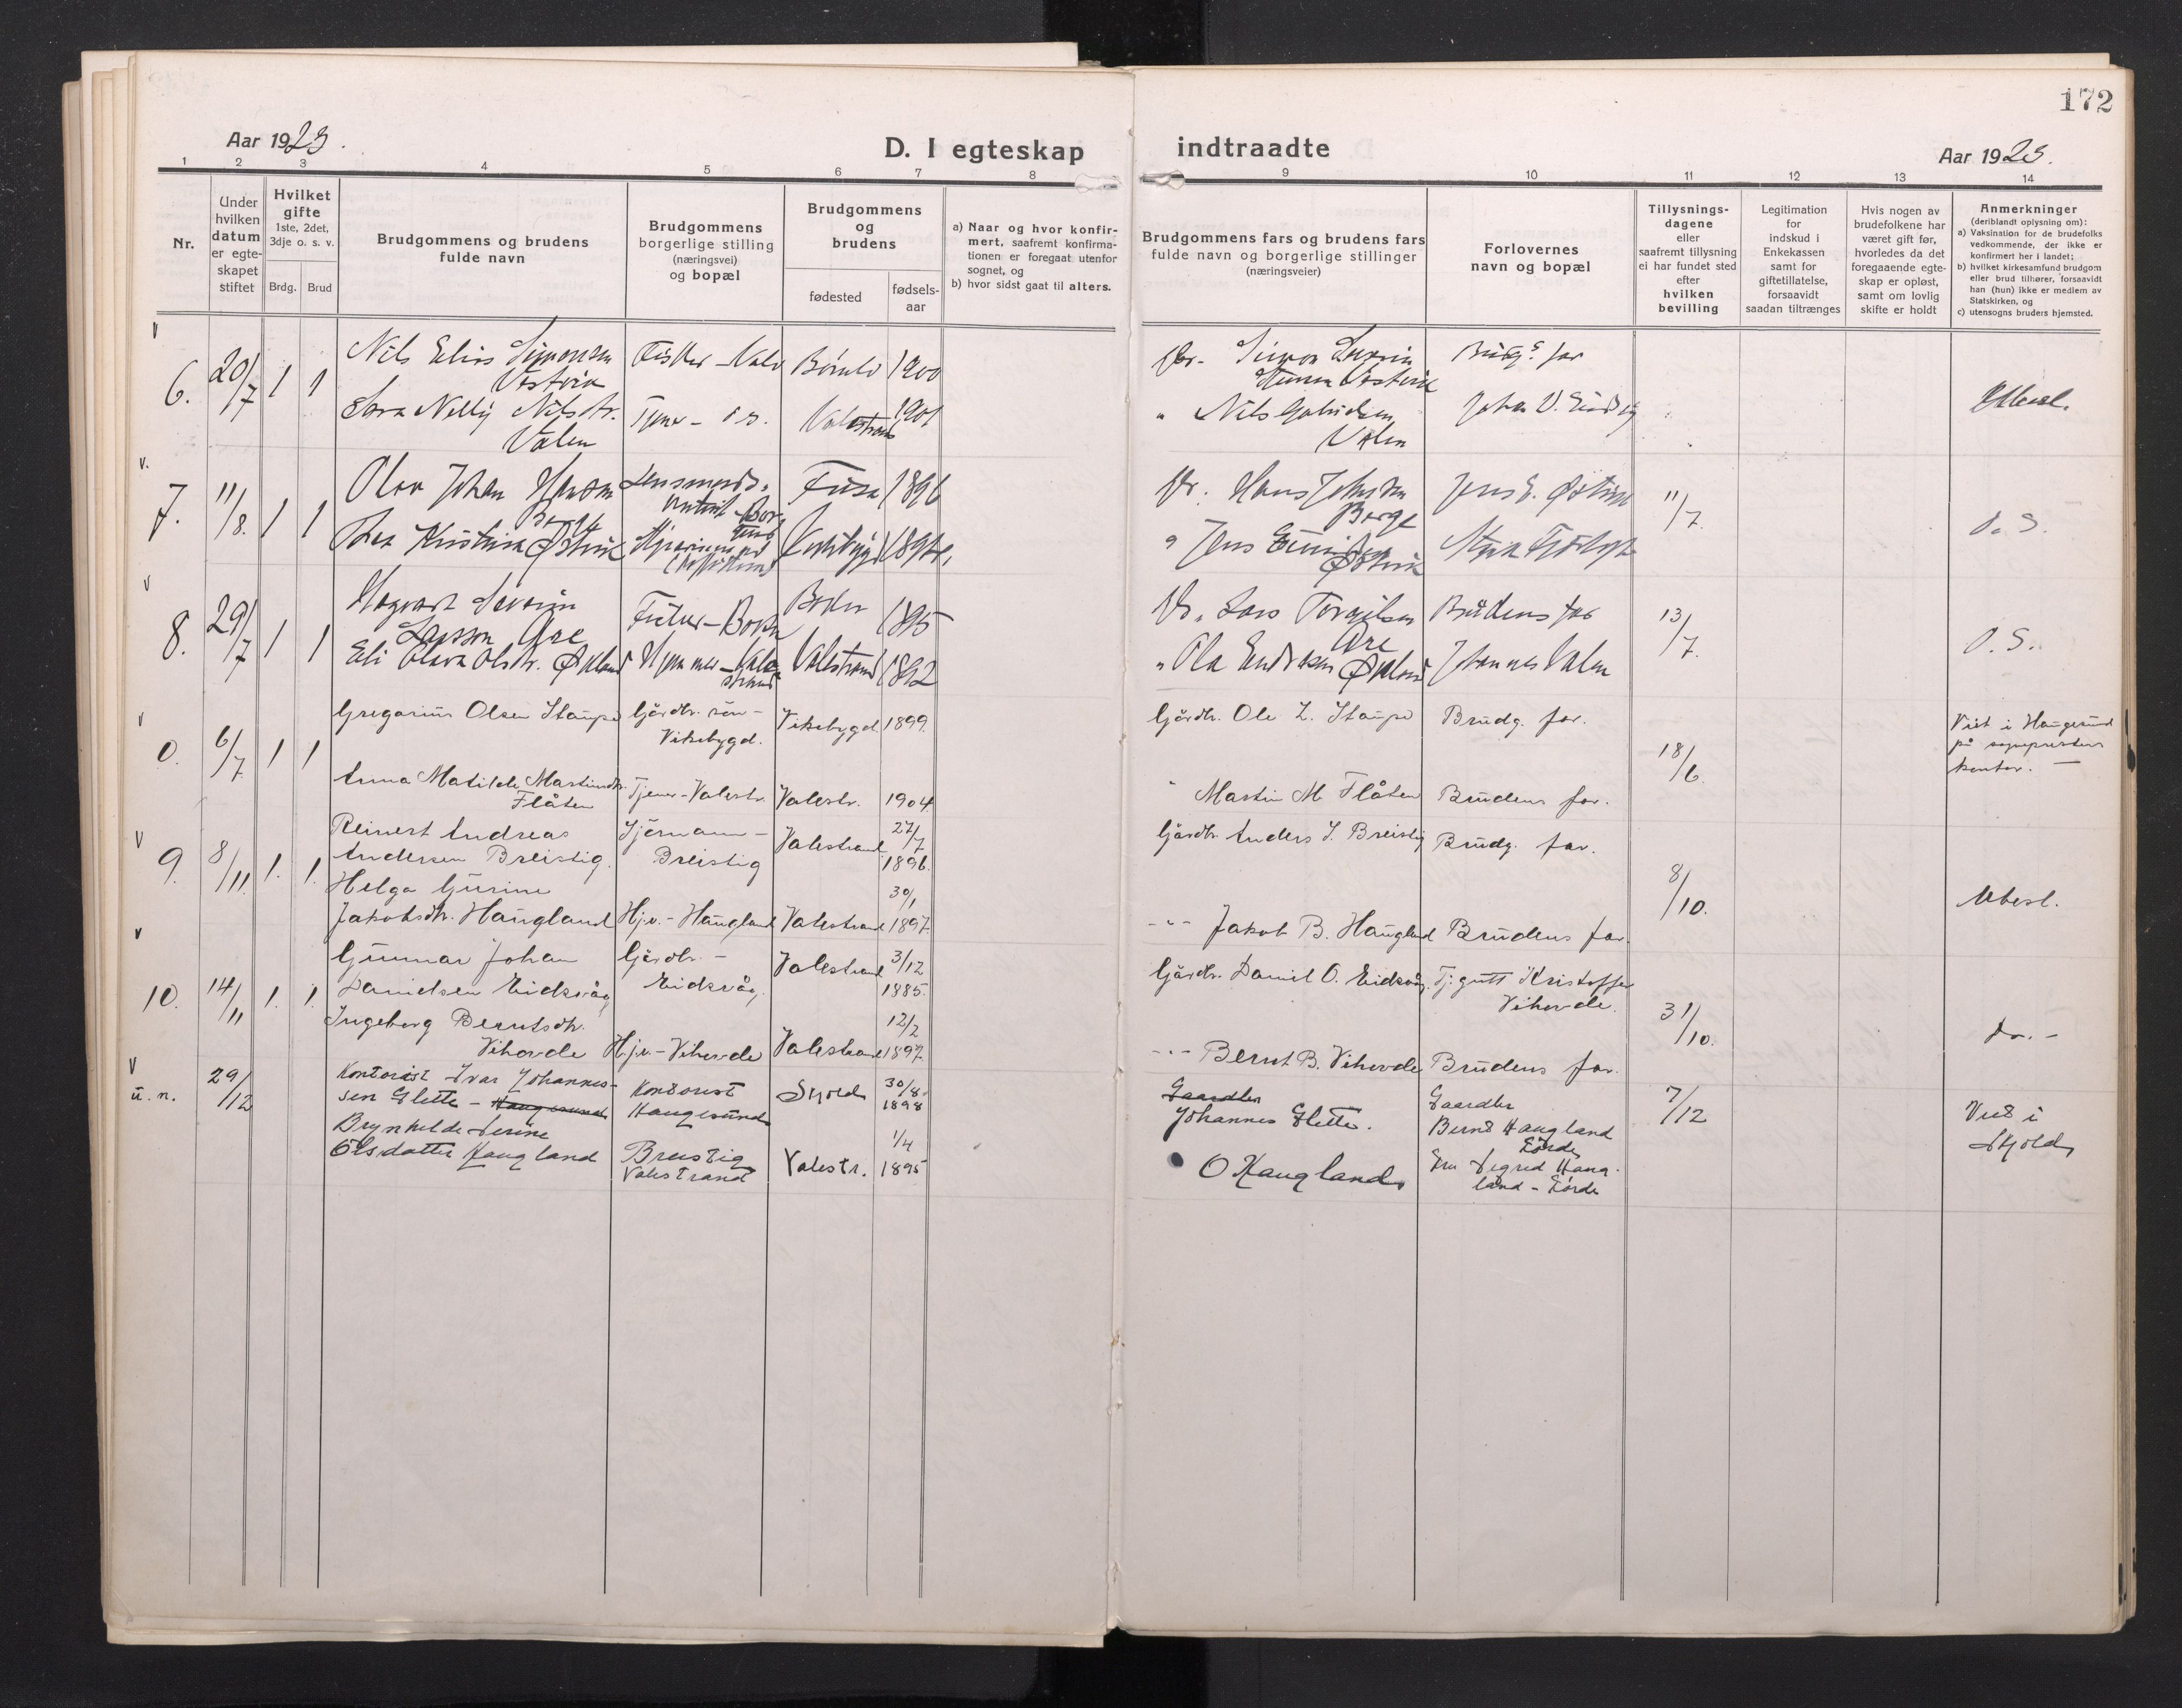 172
Aar 1923.
D. I egteskap
indtraadte
Aar 1923.
1 2 3 4 5 6 7 8 9 10 11 12 13 14
Nr.
Under
hvilken
datum
er egte-
skapet
stiftet
Hvilket
gifte
1ste, 2det,
3dje o. s. v.
Brdg. Brud
Brudgommens og brudens
fulde navn
Brudgommens
borgerlige stilling
(næringsvei)
og bopæl
Brudgommens
og
brudens
fødested
fødsels-
aar
a) Naar og hvor konfir-
mert, saafremt konfirma-
tionen er foregaat utenfor
sognet, og
b) hvor sidst gaat til alters.
Brudgommens fars og brudens fars
fulde navn og borgerlige stillinger
(næringsveier)
Forlovernes
navn og bopæl
Tillysnings-
dagene
eller
saafremt tillysning
ei har fundet sted
efter
hvilken
bevilling
Legitimation
for
indskud i
Enkekassen
samt for
giftetillatelse,
forsaavidt
saadan tiltrænges
Hvis nogen av
brudefolkene har
været gift før,
hvorledes da det
foregaaende egte-
skap er opløst,
samt om lovlig
skifte er holdt
Anmerkninger
(deriblandt oplysning om):
a) Vaksination for de brudefolks
vedkommende, der ikke er
konfirmert her i landet;
b) hvilket kirkesamfund brudgom
eller brud tilhører, forsaavidt
han (hun) ikke er medlem av
Statskirken, og
c) utensogns bruders hjemsted.
v
6. 20/7 1 1
Nils Elias Simonsen
Vestvik
Fisker Bømlo 1900
Simon
Vestvik
Brudg. far
Nelly Nilsdtr.
Valen
Valestrand 1901
" Nils
Valen
Johan
v.
7. 11/8. 1 1
Olav Johan Hanson
Fusa 1896
Hans Johnsen
Berge
Jens E. Østvik
11/7.
Kristina Østvik
" Jens
Østvik
D. S.
v
8. 29/7 1 1
Severin
Larsson Are
1895
Lars Torgilsen
Are
Brudens far
13/7.
Eli Olava Olsdtr. Økland
Valestrand 1892
" Ola Endresen Økland
Johannes Valen
D. S.
v
0. 6/7 1 1
Gregarius Olsen Staupe
Gårdbr. søn -
Vikebygd.
Vikebygd 1899.
Gårdbr. Ole L. Staupe
Brudg. far.
18/6.
Viet i Haugesund
på sogneprestens
kontor. —
Anna Matilde Martinsdtr.
Flåten
Tjener - Valestr.
Valestr. 1904
" Martin M. Flåten
Brudens far.
v
9. 8/11. 1. 1.
Reinert Andreas
Andersen Breistig.
Sjømann -
Breistig
Valestrand
27/7
1896.
Gårdbr. Anders J. Breistig
Brudg. far.
8/10.
Ubesl.
Helga Gurine
Jakobsdtr. Haugland
Hj.v. - Haugland
Valestrand
30/1
1897.
-"- Jakob B. Haugland
Brudens far.
v
10. 14/11 1. 1.
Gunnar Johan
Danielsen Eidsvåg
Gårdbr. -
Eidsvåg.
Valestrand
3/12
1885.
Gårdbr. Daniel O. Eidsvåg.
Tj. gutt Kristoffer
Vihovde.
31/10.
do. -
Ingeborg Berntsdtr.
Vihovde
Hj.v. - Vihovde
Valestrand
12/2
1897.
-"- Bernt B. Vihovde
Brudens far.
v
u. n. 29/12
Kontorist Ivar Johannes-
sen Slette - Haugesund
Kontorist
Haugesund
Skjold
30/8.
1898
Gaardbr
Johannes Slette.
Gaardbr
Bernt Haugland
Førde
7/12
Viet i
Skjold
Brynhilde Serine
Olsdatter Haugland
Breistig
Valestrand
Valestr.
1/4
1895
O Haugland
Fru Sigrid Haug-
land - Førde